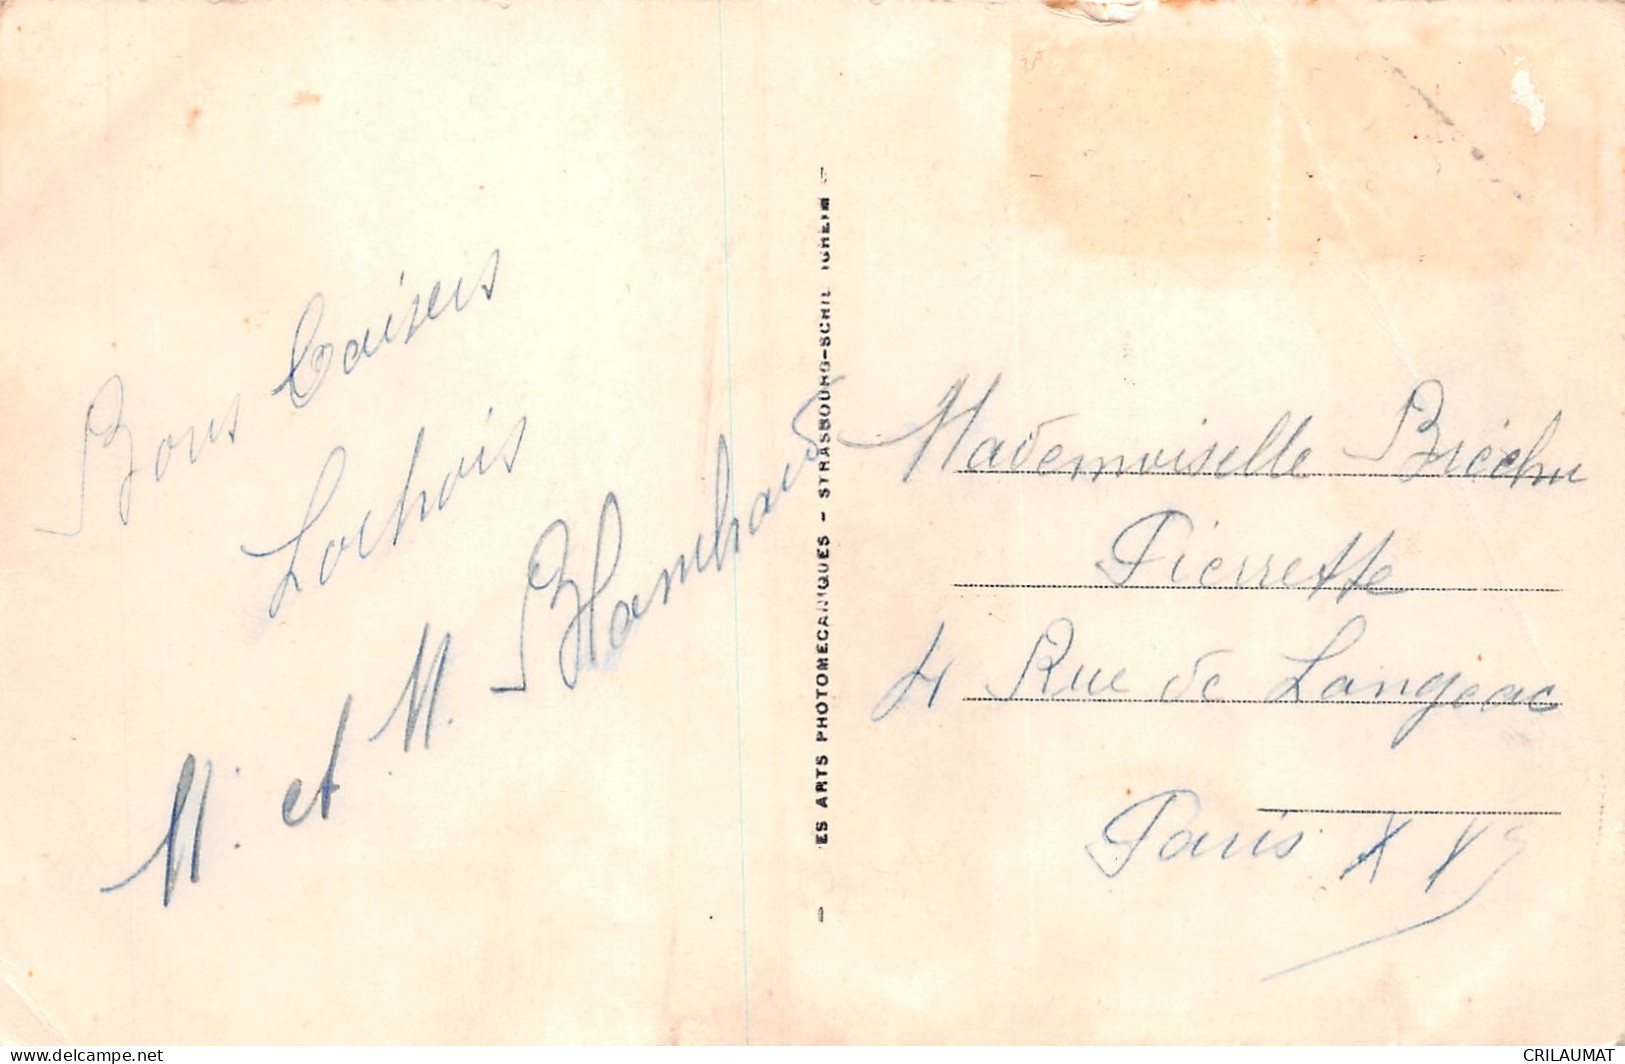 Bons Baisers
Lochois
M. et M. Blanchard
ES ARTS PHOTOMECANIQUES - STRASBOURG-SCHIL IGHEIM -
Mademoiselle
Pierrette
4 Rue de Langeac
Paris XV
www.delcampe.net
CRILAUMAT